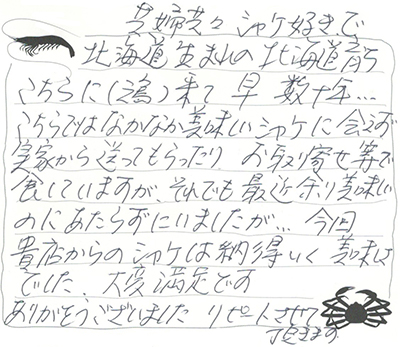 夫婦共々 シャケ好きで
北海道生まれの北海道育ち
こちらに(鴻)来て 早 数十年…
こちらではなかなか美味しいシャケに会えず
実家から送ってもらったり お取り寄せ等で
食していますが、それでも最近余り美味しい
のにあたらずにいましたが… 今回
貴店からのシャケは納得いく美味さ
でした。大変満足です
ありがとうございました リピートさせて
頂きます